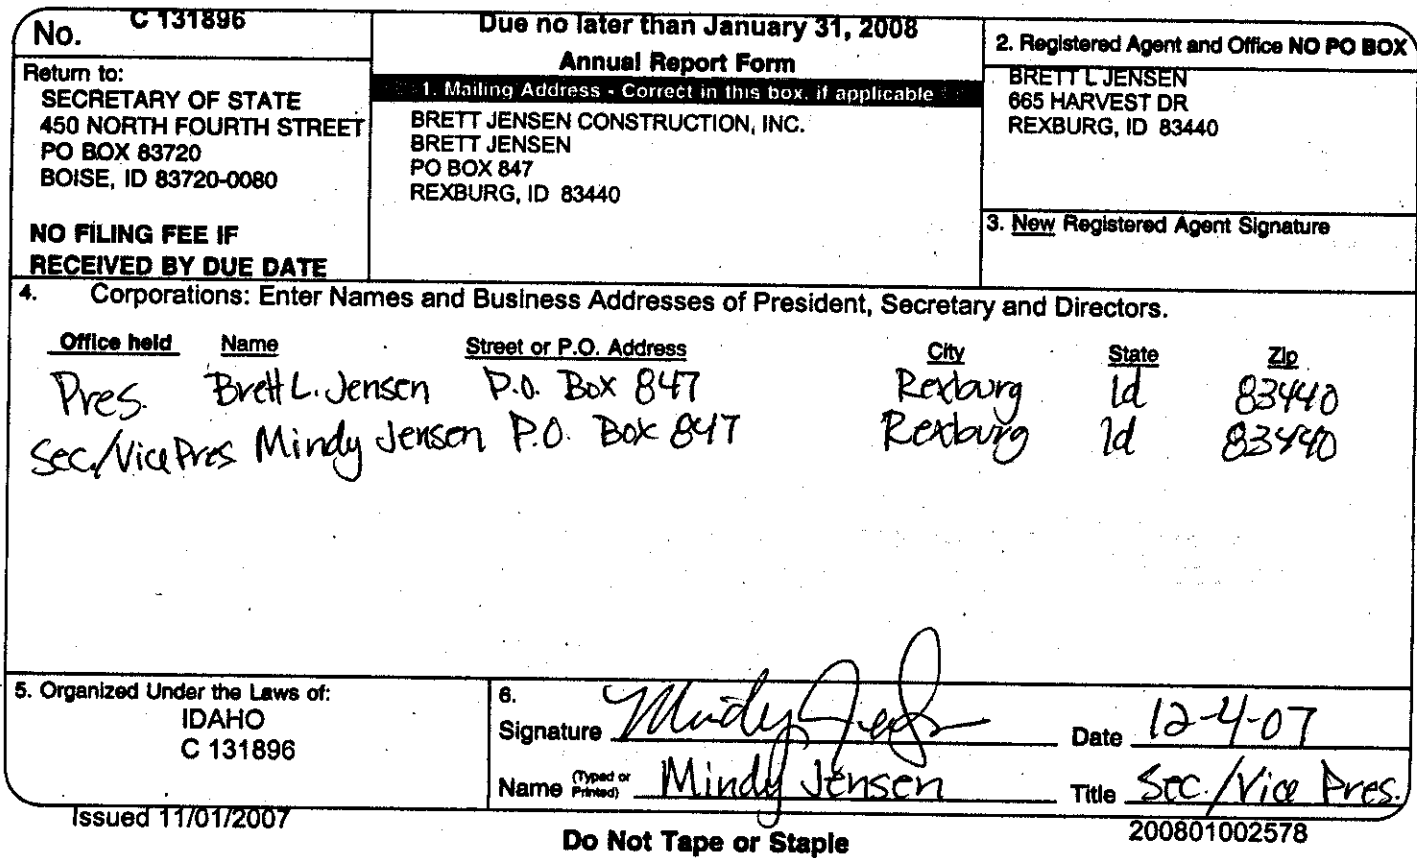 No. C 131896
Return to:
SECRETARY OF STATE
450 NORTH FOURTH STREET
PO BOX 83720
BOISE, ID 83720-0080
NO FILING FEE IF
RECEIVED BY DUE DATE
Due no later than January 31, 2008
Annual Report Form
1. Mailing Address - Correct in this box, if applicable
BRETT JENSEN CONSTRUCTION, INC.
BRETT JENSEN
PO BOX 847
REXBURG, ID 83440
2. Registered Agent and Office NO PO BOX
BRETT L JENSEN
665 HARVEST DR
REXBURG, ID 83440
3. New Registered Agent Signature
4. Corporations: Enter Names and Business Addresses of President, Secretary and Directors.
Office held Name Street or P.O. Address City State Zip
Pres. Brett L. Jensen P.O. Box 847 Rexburg Id 83440
Sec./Vice Pres Mindy Jensen P.O. Box 847 Rexburg Id 83440
5. Organized Under the Laws of:
IDAHO
C 131896
6.
Signature Mindy Jensen Date 12-4-07
Name (Typed or Printed) Mindy Jensen Title Sec./Vice Pres.
Issued 11/01/2007
Do Not Tape or Staple
200801002578